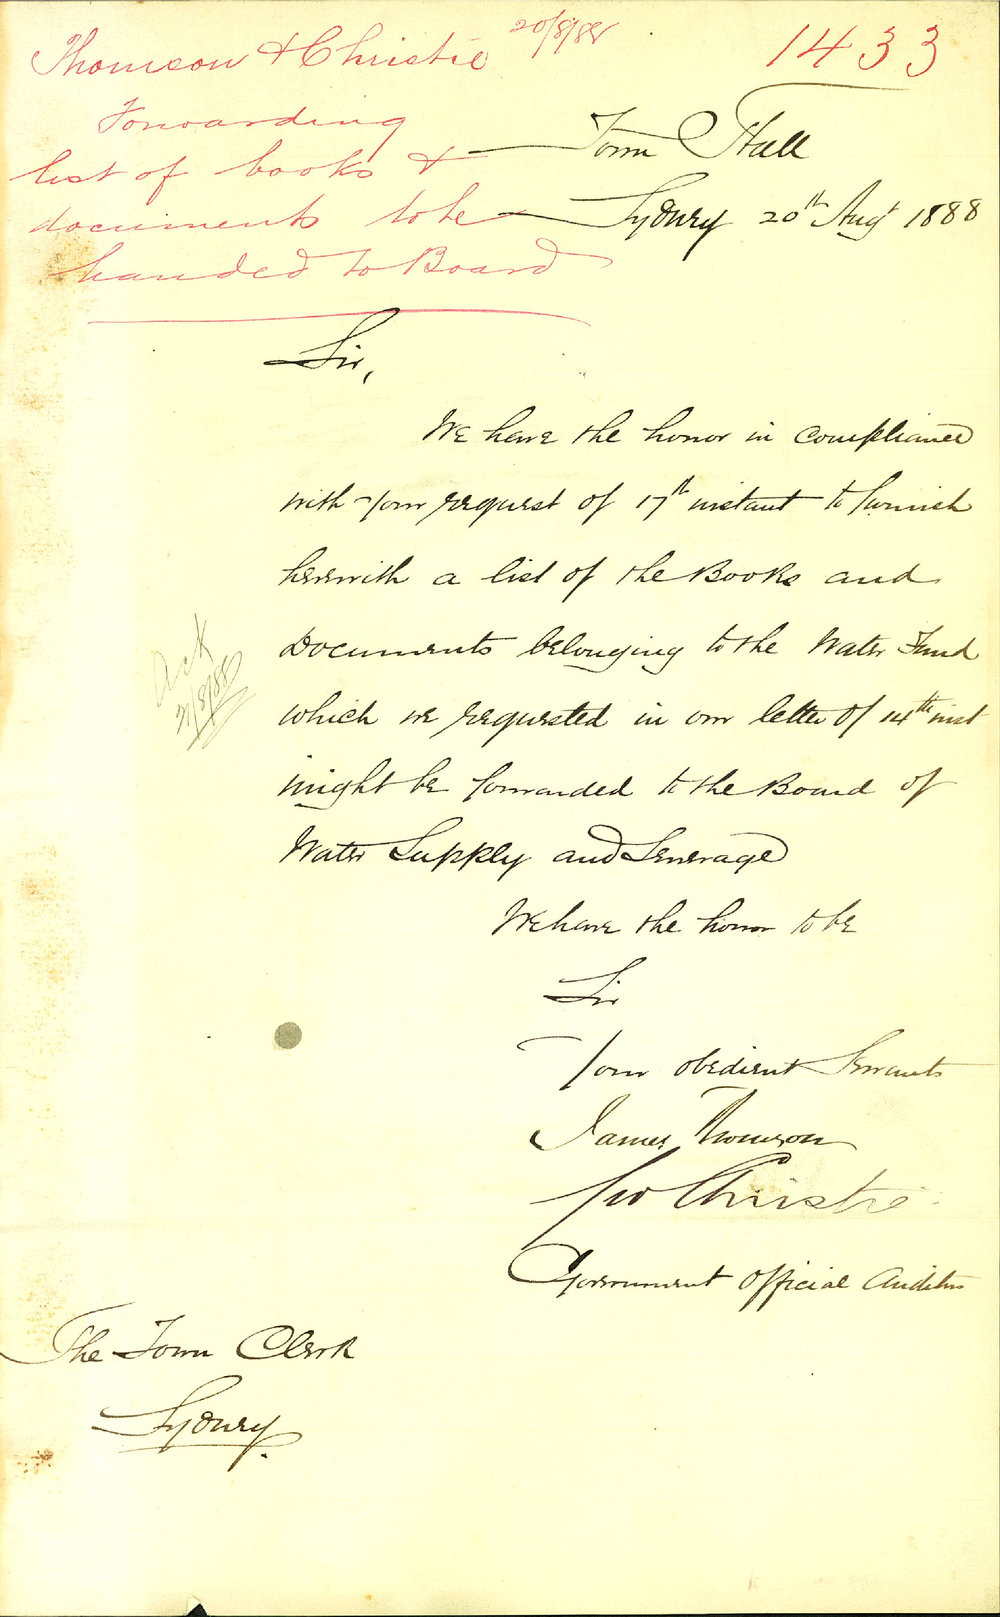 Thomson & Christie 20/8/88
1433
Forwarding
list of books &
documents to be
handed to Board
Town Hall
Sydney 20th Augt 1888
Sir,
We have the honor in compliance
with your request of 17th instant to furnish
herewith a list of the Books and
Documents belonging to the Water Fund
which we requested in our letter of 14th inst
might be forwarded to the Board of
Water Supply and Sewerage
Ack
21/8/88
We have the honor to be
Sir
Your obedient Servants
James Thomson
Geo Christie
Government Official Auditors
The Town Clerk
Sydney.